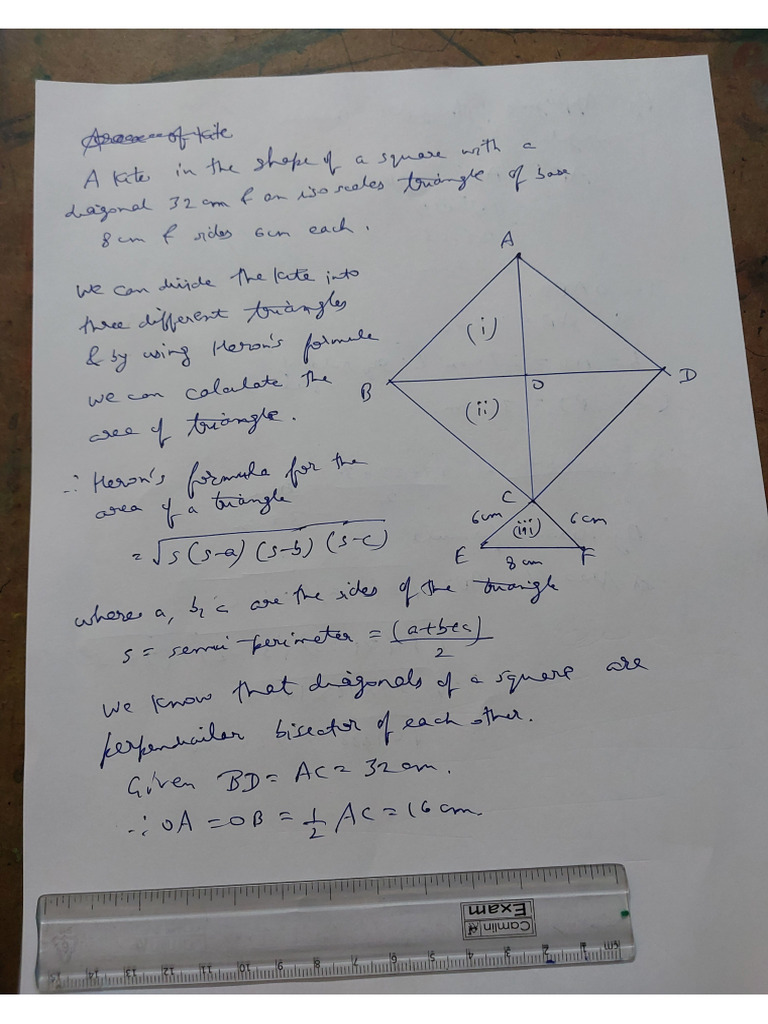 Area of kite
A kite in the shape of a square with a
diagonal 32 cm & an isosceles triangle of base
8 cm & sides 6 cm each.
We can divide the kite into
three different triangles
& by using Heron's formula
we can calculate the
area of triangle.
∴ Heron's formula for the
area of a triangle
= √s(s-a)(s-b)(s-c)
where a, b, c are the sides of the triangle
s = semi-perimeter = (a+b+c)
2
We know that diagonals of a square are
perpendicular bisector of each other.
Given BD = AC = 32 cm.
∴ OA = OB = 1/2 AC = 16 cm.
A
(i)
B
O
D
(ii)
C
6cm
(iii)
6cm
E
8 cm
F
Camlin
Exam
cm 1 2 3 4 5 6 7 8 9 10 11 12 13 14 15